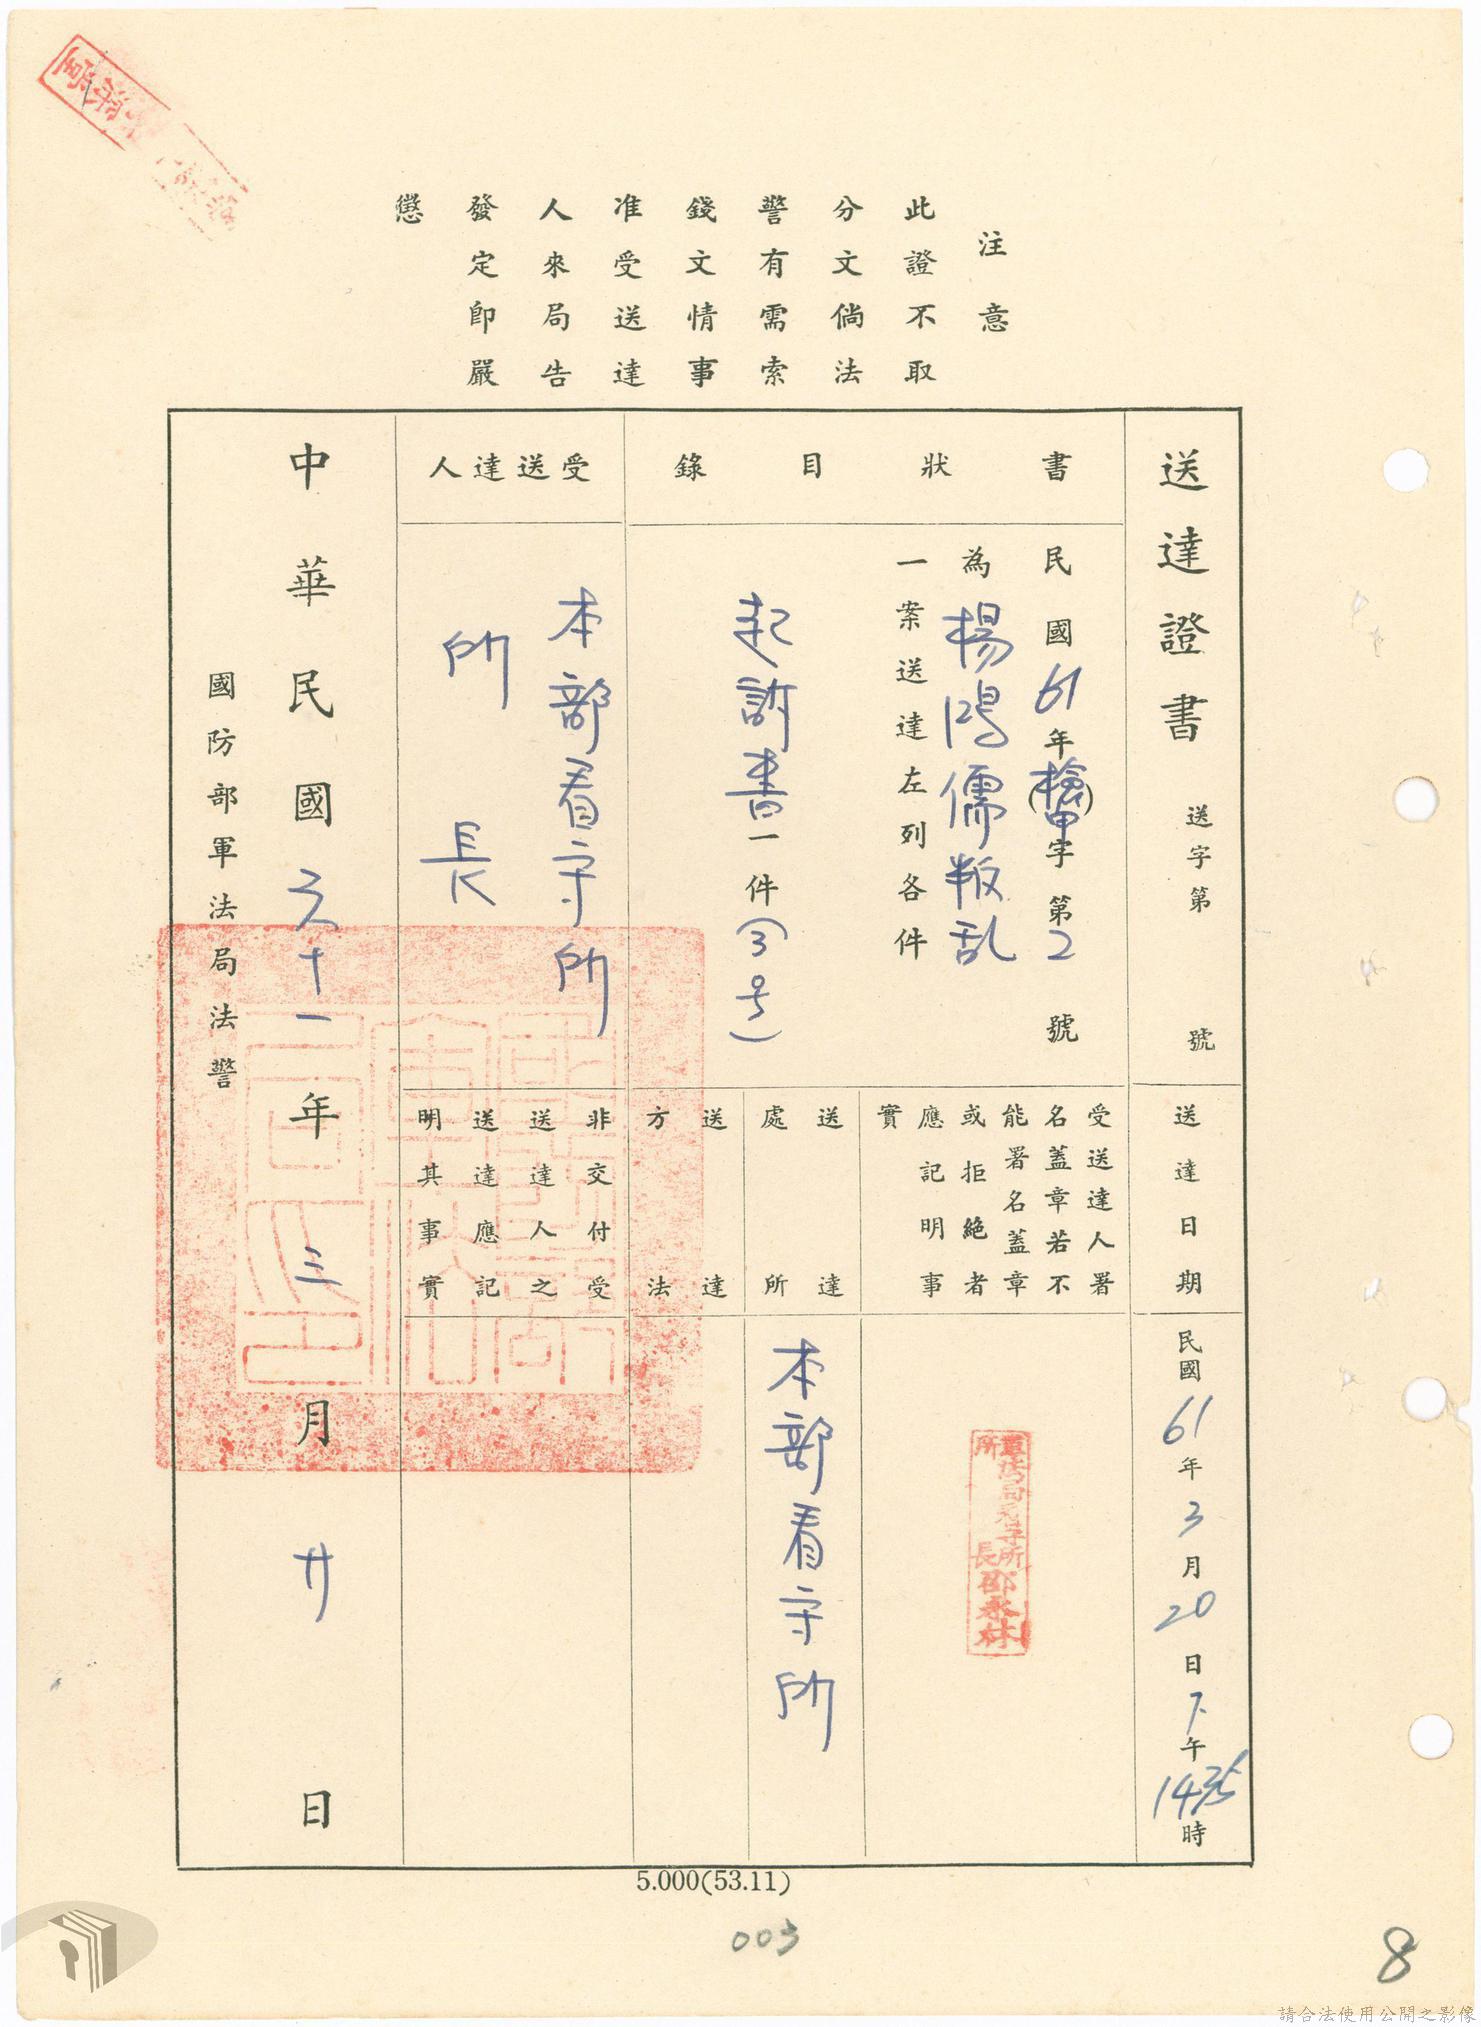 注意
此證不取
分文倘法
警有需索
錢文情事
准受送達
人來局告
發定即嚴
懲
送達證書 送字第 號
書狀目錄
民國61年(檢甲)字第2號
為楊鴻儒叛乱
一案送達左列各件
起訴書一件(3号)
受送達人
本部看守所
所長
送達日期
民國61年3月20日下午1435時
受送達人署
名蓋章若不
能署名蓋章
或拒絕者
應記明事
實
軍法局看守所
所長邵永林
送達
處所
本部看守所
送達
方法
非交付受
送達人之
送達應記
明其事實
中華民國六十一年三月廿日
國防部軍法局法警
5.000(53.11)
003
8
請合法使用公開之影像